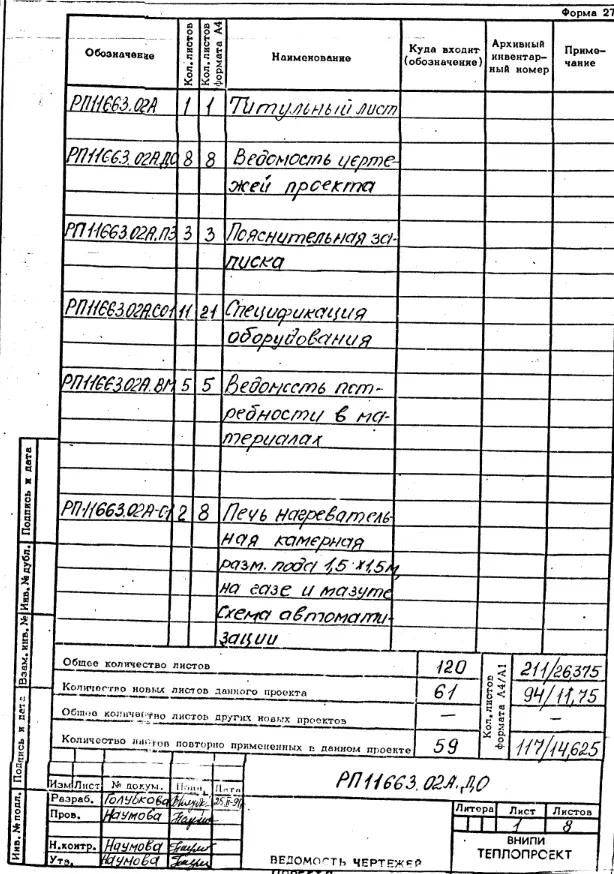 Форма 27
Обозначение Кол. листов Кол. листов формата А4 Наименование Куда входит (обозначение) Архивный инвентарный номер Примечание
РП11663.02А 1 1 Титульный лист
РП11663.02А.ДО 8 8 Ведомость черте-
жей проекта
РП11663.02А.ПЗ 3 3 Пояснительная за-
писка
РП11663.02А.СО1 11 21 Спецификация
оборудования
РП11663.02А.ВМ 5 5 Ведомость пот-
ребности в ма-
териалах
РП11663.02А-С1 2 8 Печь нагреватель-
ная камерная
разм. пода 1,5×1,5м,
на газе и мазуте
Схема автомати-
зации
Общее количество листов 120 211/26,375
Количество новых листов данного проекта 61 94/11,75
Общее количество листов других новых проектов — —
Количество листов повторно примененных в данном проекте 59 117/14,625
Кол. листов формата А4/А1
Инв. № подл.
Подпись и дата
Взам. инв. №
Инв. № дубл.
Подпись и дата
РП11663.02А.ДО
Изм Лист № докум. Подп. Дата
Разраб. Голубкова
Пров. Наумова
Н.контр. Наумова
Утв. Наумова
ВЕДОМОСТЬ ЧЕРТЕЖЕЙ
ПРОЕКТА
Литера Лист Листов
1 8
ВНИПИ
ТЕПЛОПРОЕКТ